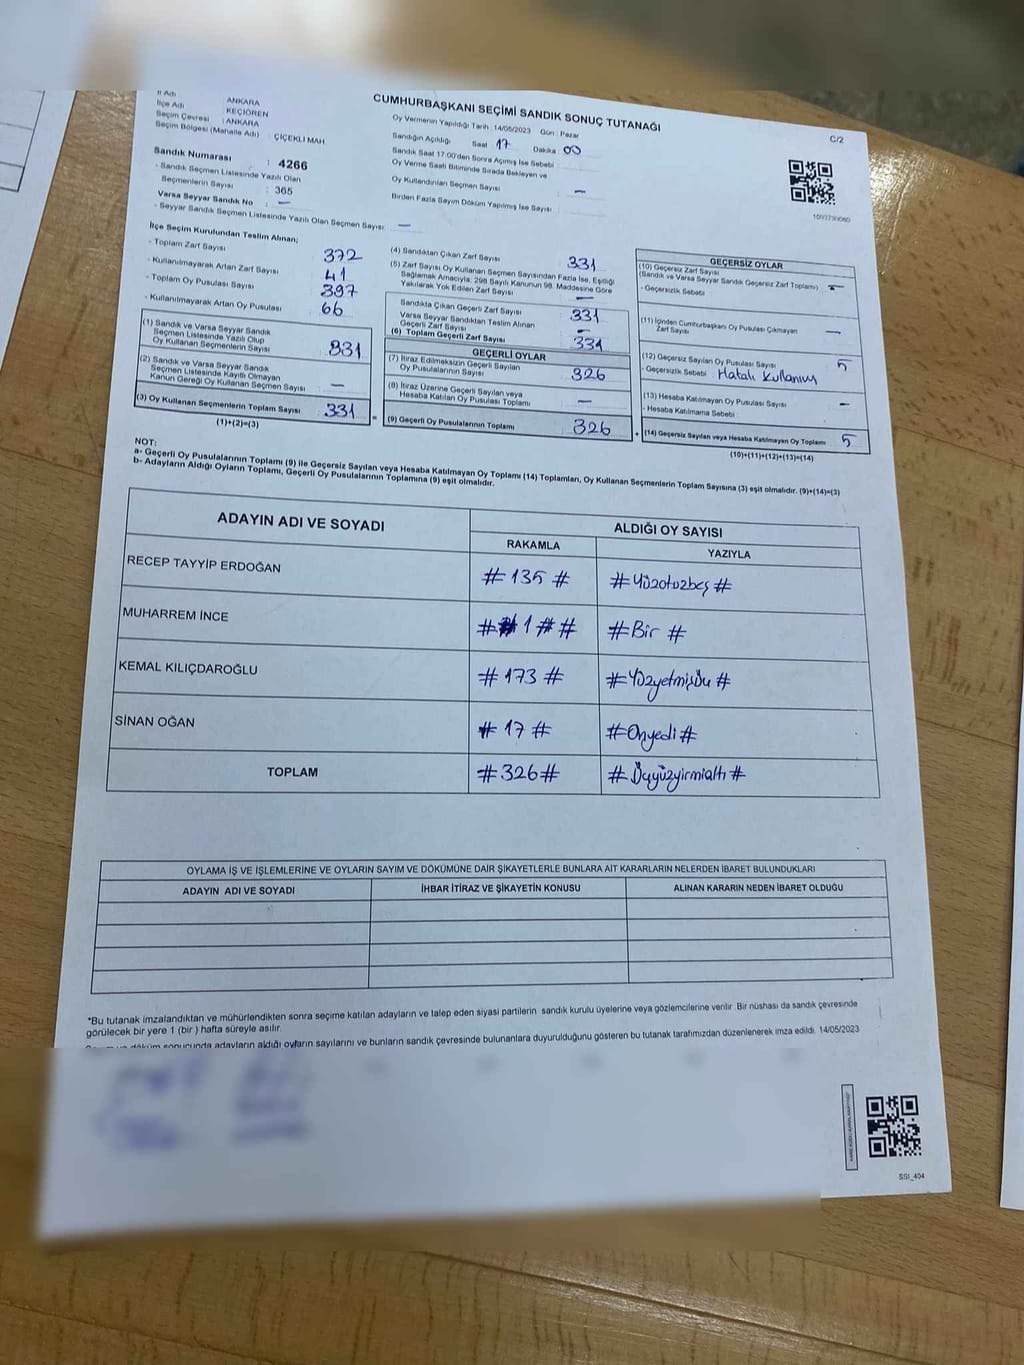 İl Adı ANKARA
İlçe Adı KEÇİÖREN
Seçim Çevresi : ANKARA
Seçim Bölgesi (Mahalle Adı) : ÇİÇEKLİ MAH
CUMHURBAŞKANI SEÇİMİ SANDIK SONUÇ TUTANAĞI
C/2
Oy Vermenin Yapıldığı Tarih : 14/05/2023 Gün : Pazar
Sandığın Açıldığı Saat 17 Dakika 00
Sandık Saat 17:00'den Sonra Açımış İse Sebebi :
Oy Verme Saati Bitiminde Sırada Bekleyen ve
Oy Kullandırılan Seçmen Sayısı —
Birden Fazla Sayım Döküm Yapılmış İse Sayısı
Sandık Numarası : 4266
- Sandık Seçmen Listesinde Yazılı Olan
Seçmenlerin Sayısı : 365
Varsa Seyyar Sandık No : —
- Seyyar Sandık Seçmen Listesinde Yazılı Olan Seçmen Sayısı : —
İlçe Seçim Kurulundan Teslim Alınan;
- Toplam Zarf Sayısı 372
- Kullanılmayarak Artan Zarf Sayısı 41
- Toplam Oy Pusulası Sayısı 397
- Kullanılmayarak Artan Oy Pusulası 66
(1) Sandık ve Varsa Seyyar Sandık
Seçmen Listesinde Yazılı Olup
Oy Kullanan Seçmenlerin Sayısı 331
(2) Sandık ve Varsa Seyyar Sandık
Seçmen Listesinde Kayıtlı Olmayan
Kanun Gereği Oy Kullanan Seçmen Sayısı —
(3) Oy Kullanan Seçmenlerin Toplam Sayısı 331
(1)+(2)=(3)
(4) Sandıktan Çıkan Zarf Sayısı 331
(5) Zarf Sayısı Oy Kullanan Seçmen Sayısından Fazla İse, Eşitliği
Sağlamak Amacıyla, 298 Sayılı Kanunun 98. Maddesine Göre
Yakılarak Yok Edilen Zarf Sayısı —
Sandıkta Çıkan Geçerli Zarf Sayısı 331
Varsa Seyyar Sandıktan Teslim Alınan
Geçerli Zarf Sayısı —
(6) Toplam Geçerli Zarf Sayısı 331
GEÇERLİ OYLAR
(7) İtiraz Edilmeksizin Geçerli Sayılan
Oy Pusulalarının Sayısı 326
(8) İtiraz Üzerine Geçerli Sayılan veya
Hesaba Katılan Oy Pusulası Toplamı —
= (9) Geçerli Oy Pusulalarının Toplamı 326
GEÇERSİZ OYLAR
(10) Geçersiz Zarf Sayısı
(Sandık ve Varsa Seyyar Sandık Geçersiz Zarf Toplamı) —
- Geçersizlik Sebebi :
(11) İçinden Cumhurbaşkanı Oy Pusulası Çıkmayan
Zarf Sayısı —
(12) Geçersiz Sayılan Oy Pusulası Sayısı 5
- Geçersizlik Sebebi : Hatalı Kullanım
(13) Hesaba Katılmayan Oy Pusulası Sayısı —
- Hesaba Katılmama Sebebi :
+ (14) Geçersiz Sayılan veya Hesaba Katılmayan Oy Toplamı 5
(10)+(11)+(12)+(13)=(14)
NOT:
a- Geçerli Oy Pusulalarının Toplamı (9) ile Geçersiz Sayılan veya Hesaba Katılmayan Oy Toplamı (14) Toplamları, Oy Kullanan Seçmenlerin Toplam Sayısına (3) eşit olmalıdır. (9)+(14)=(3)
b- Adayların Aldığı Oyların Toplamı, Geçerli Oy Pusulalarının Toplamına (9) eşit olmalıdır.
ADAYIN ADI VE SOYADI ALDIĞI OY SAYISI
RAKAMLA YAZIYLA
RECEP TAYYİP ERDOĞAN # 135 # #Yüzotuzbeş #
MUHARREM İNCE # # 1 # # #Bir #
KEMAL KILIÇDAROĞLU # 173 # #Yüzyetmişüu #
SİNAN OĞAN # 17 # #Onyedi #
TOPLAM #326# #Üçyüzyirmialtı #
OYLAMA İŞ VE İŞLEMLERİNE VE OYLARIN SAYIM VE DÖKÜMÜNE DAİR ŞİKAYETLERLE BUNLARA AİT KARARLARIN NELERDEN İBARET BULUNDUKLARI
ADAYIN ADI VE SOYADI İHBAR İTİRAZ VE ŞİKAYETİN KONUSU ALINAN KARARIN NEDEN İBARET OLDUĞU
*Bu tutanak imzalandıktan ve mühürlendikten sonra seçime katılan adayların ve talep eden siyasi partilerin sandık kurulu üyelerine veya gözlemcilerine verilir .Bir nüshası da sandık çevresinde
görülecek bir yere 1 (bir ) hafta süreyle asılır.
döküm sonucunda adayların aldığı oyların sayılarını ve bunların sandık çevresinde bulunanlara duyurulduğunu gösteren bu tutanak tarafımızdan düzenlenerek imza edildi. 14/05/2023
SSI_404